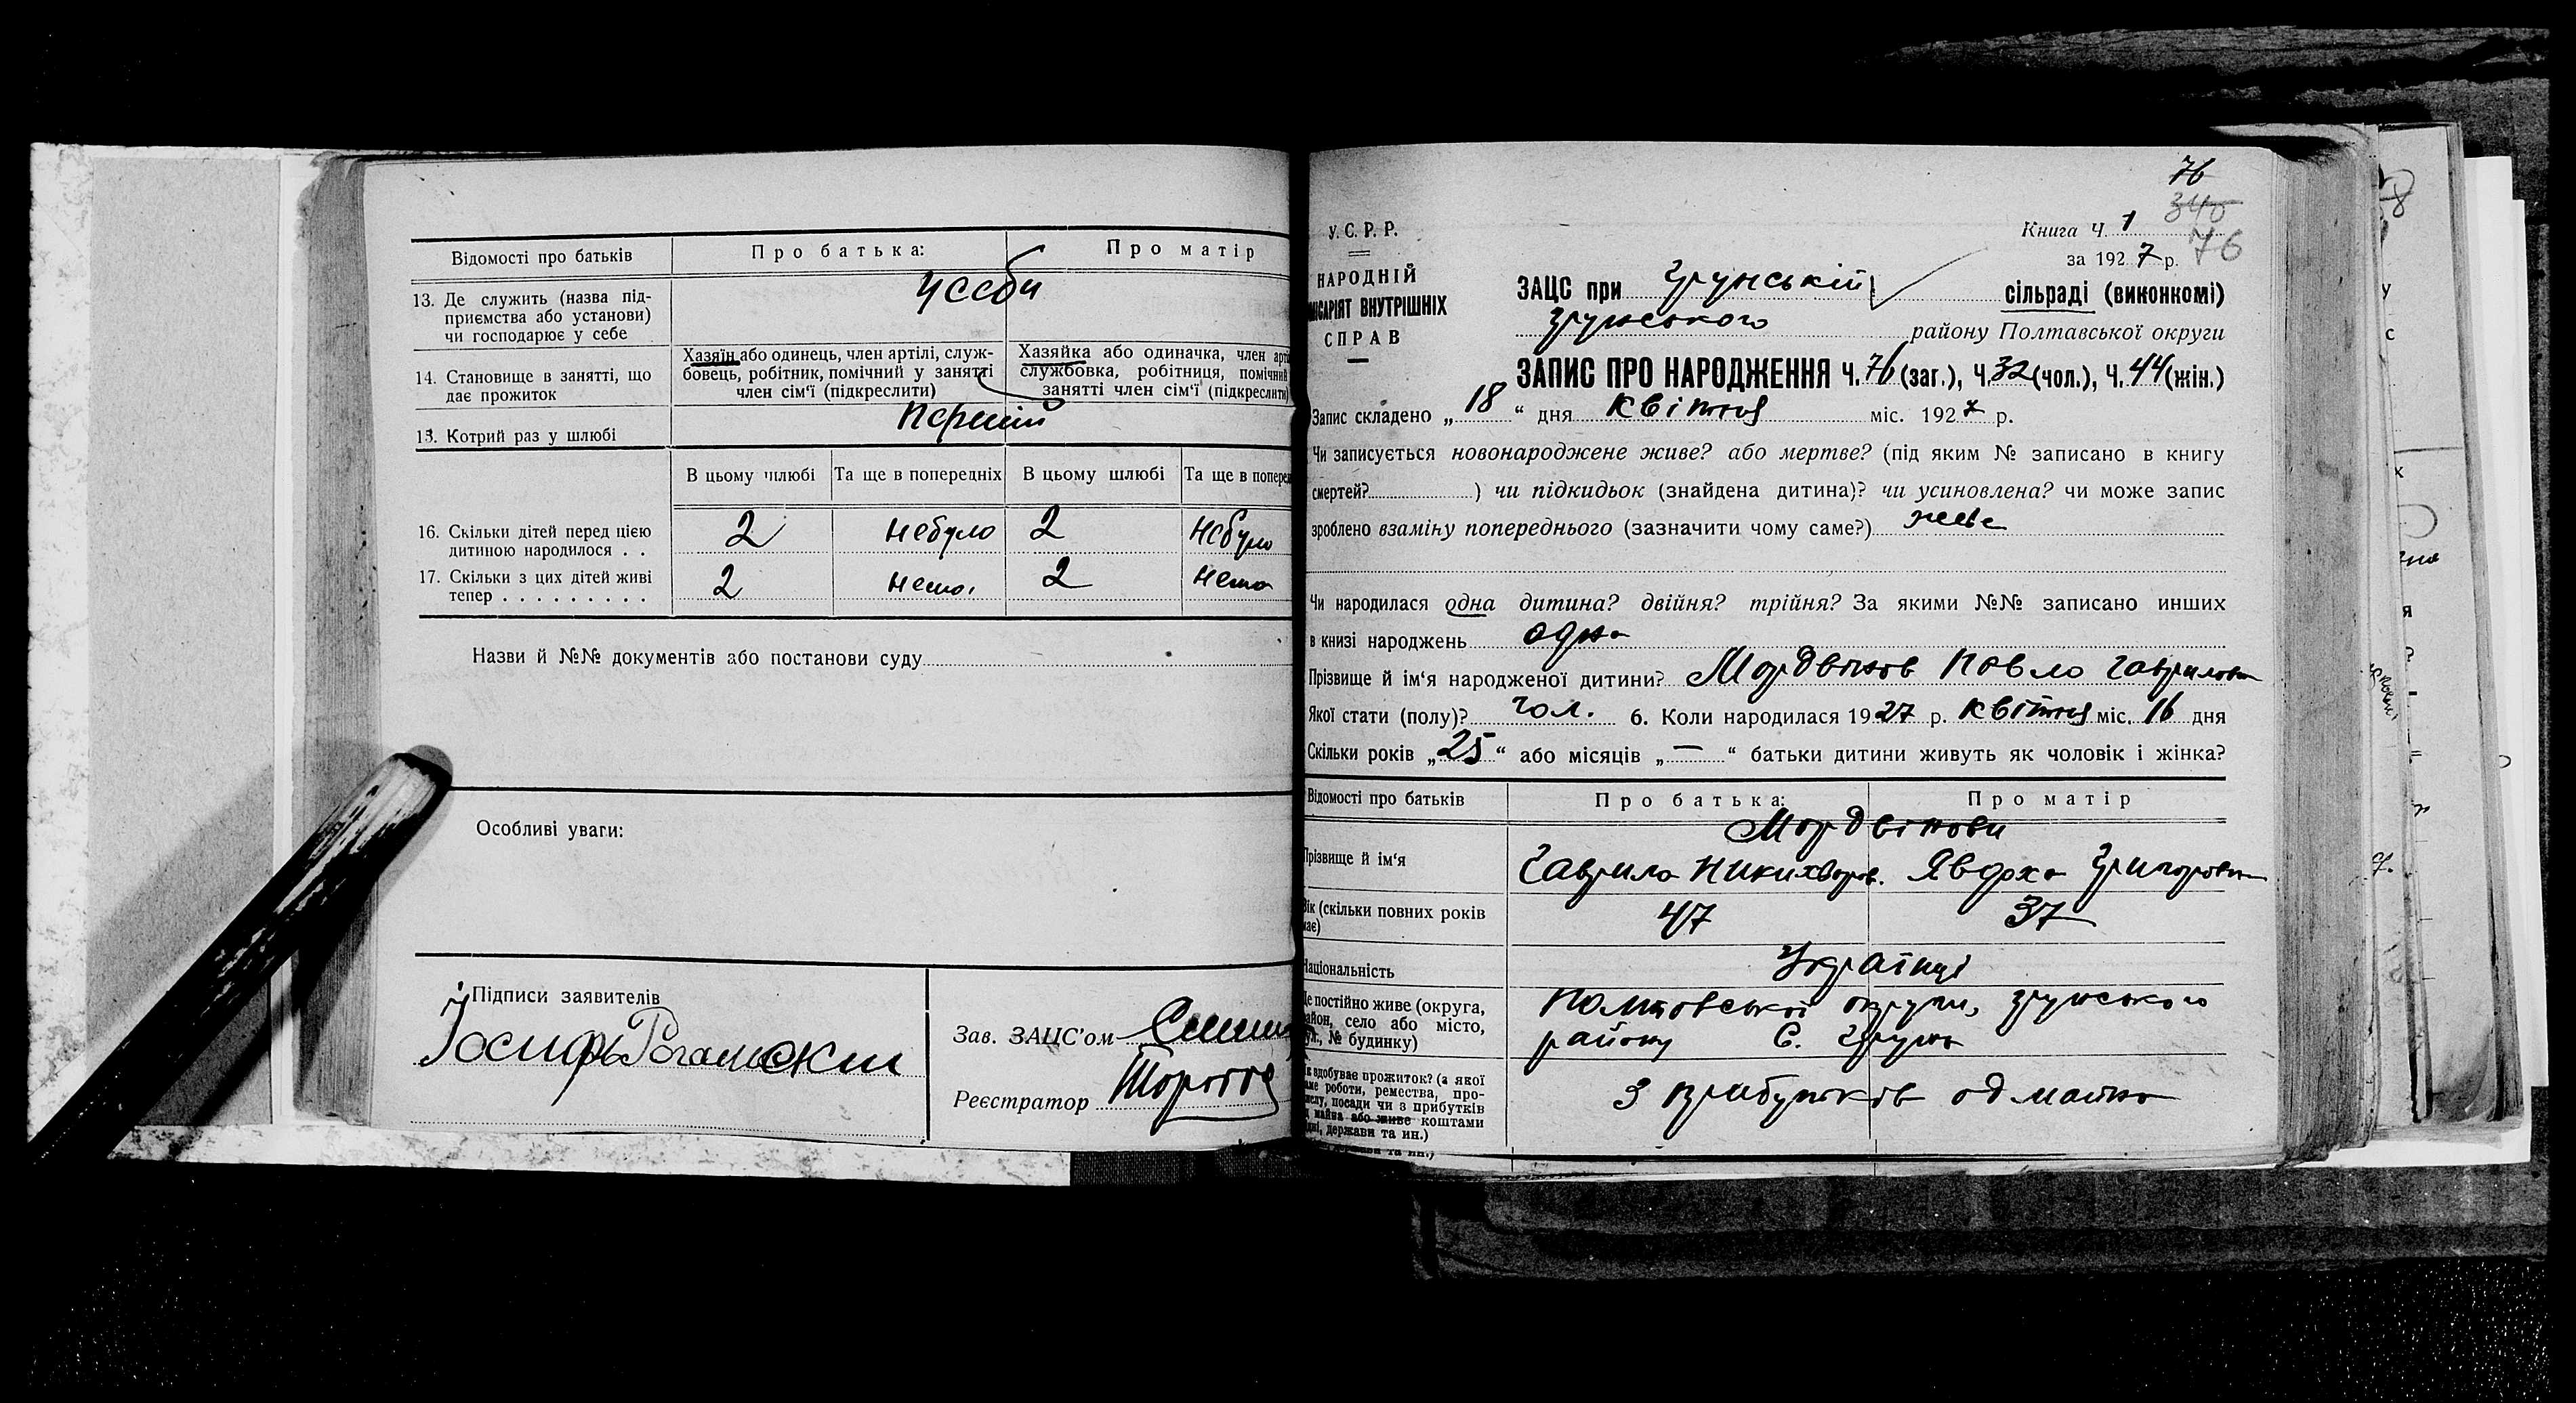 Відомості про батьків
Про батька:
Про матір
13. Де служить (назва під-
приємства або установи)
чи господарює у себе
усеби
14. Становище в занятті, що
дає прожиток
Хазяїн або одинець, член артілі, служ-
бовець, робітник, помічний у занятті
член сім'ї (підкреслити)
Хазяйка або одиначка, член арті
службовка, робітниця, помічний
занятті член сім'ї (підкреслити)
13. Котрий раз у шлюбі
перший
В цьому шлюбі Та ще в попередніх В цьому шлюбі Та ще в поперед
16. Скільки дітей перед цією
дитиною народилося . .
2 небуло 2 небуло
17. Скільки з цих дітей живі
тепер . . . . . . . . .
2 нема. 2 нема
Назви й №№ документів або постанови суду
Особливі уваги:
Підписи заявителів
Іосифъ
Зав. ЗАЦС'ом
Реєстратор
76
340
76
У.С.Р.Р.
НАРОДНІЙ
ІСАРІЯТ ВНУТРІШНІХ
СПРАВ
Книга Ч. 1
за 1927 р.
ЗАЦС при Грунській сільраді (виконкомі)
Грунського району Полтавської округи
ЗАПИС ПРО НАРОДЖЕННЯ Ч. 76 (заг.), Ч. 32 (чол.), Ч. 44 (жін.)
Запис складено „ 18 “ дня квітня міс. 1927 р.
Чи записується новонароджене живе? або мертве? (під яким № записано в книгу
смертей? ) чи підкидьок (знайдена дитина)? чи усиновлена? чи може запис
зроблено взаміну попереднього (зазначити чому саме?) живе
Чи народилася одна дитина? двійня? трійня? За якими №№ записано инших
в книзі народжень одна
Прізвище й ім'я народженої дитини? Мордвінов Павло Гаврилов
Якої стати (полу)? чол. 6. Коли народилася 1927 р. квітня міс. 16 дня
Скільки років „ 25 “ або місяців „ — “ батьки дитини живуть як чоловік і жінка?
Відомості про батьків
Про батька:
Про матір
Прізвище й ім'я
Мордвінови
Гаврило Никихворов. Явдоха Григоровна
Вік (скільки повних років
має)
47 37
Національність
Українці
Де постійно живе (округа,
район, село або місто,
вул., № будинку)
Полтовської округи, грунського
району С. Грунь
Як здобуває прожиток? (з якої
саме роботи, ремества, про-
мислу, посади чи з прибутків
од майна або живе коштами
рідні, держави та ин.)
З прибутків од майна